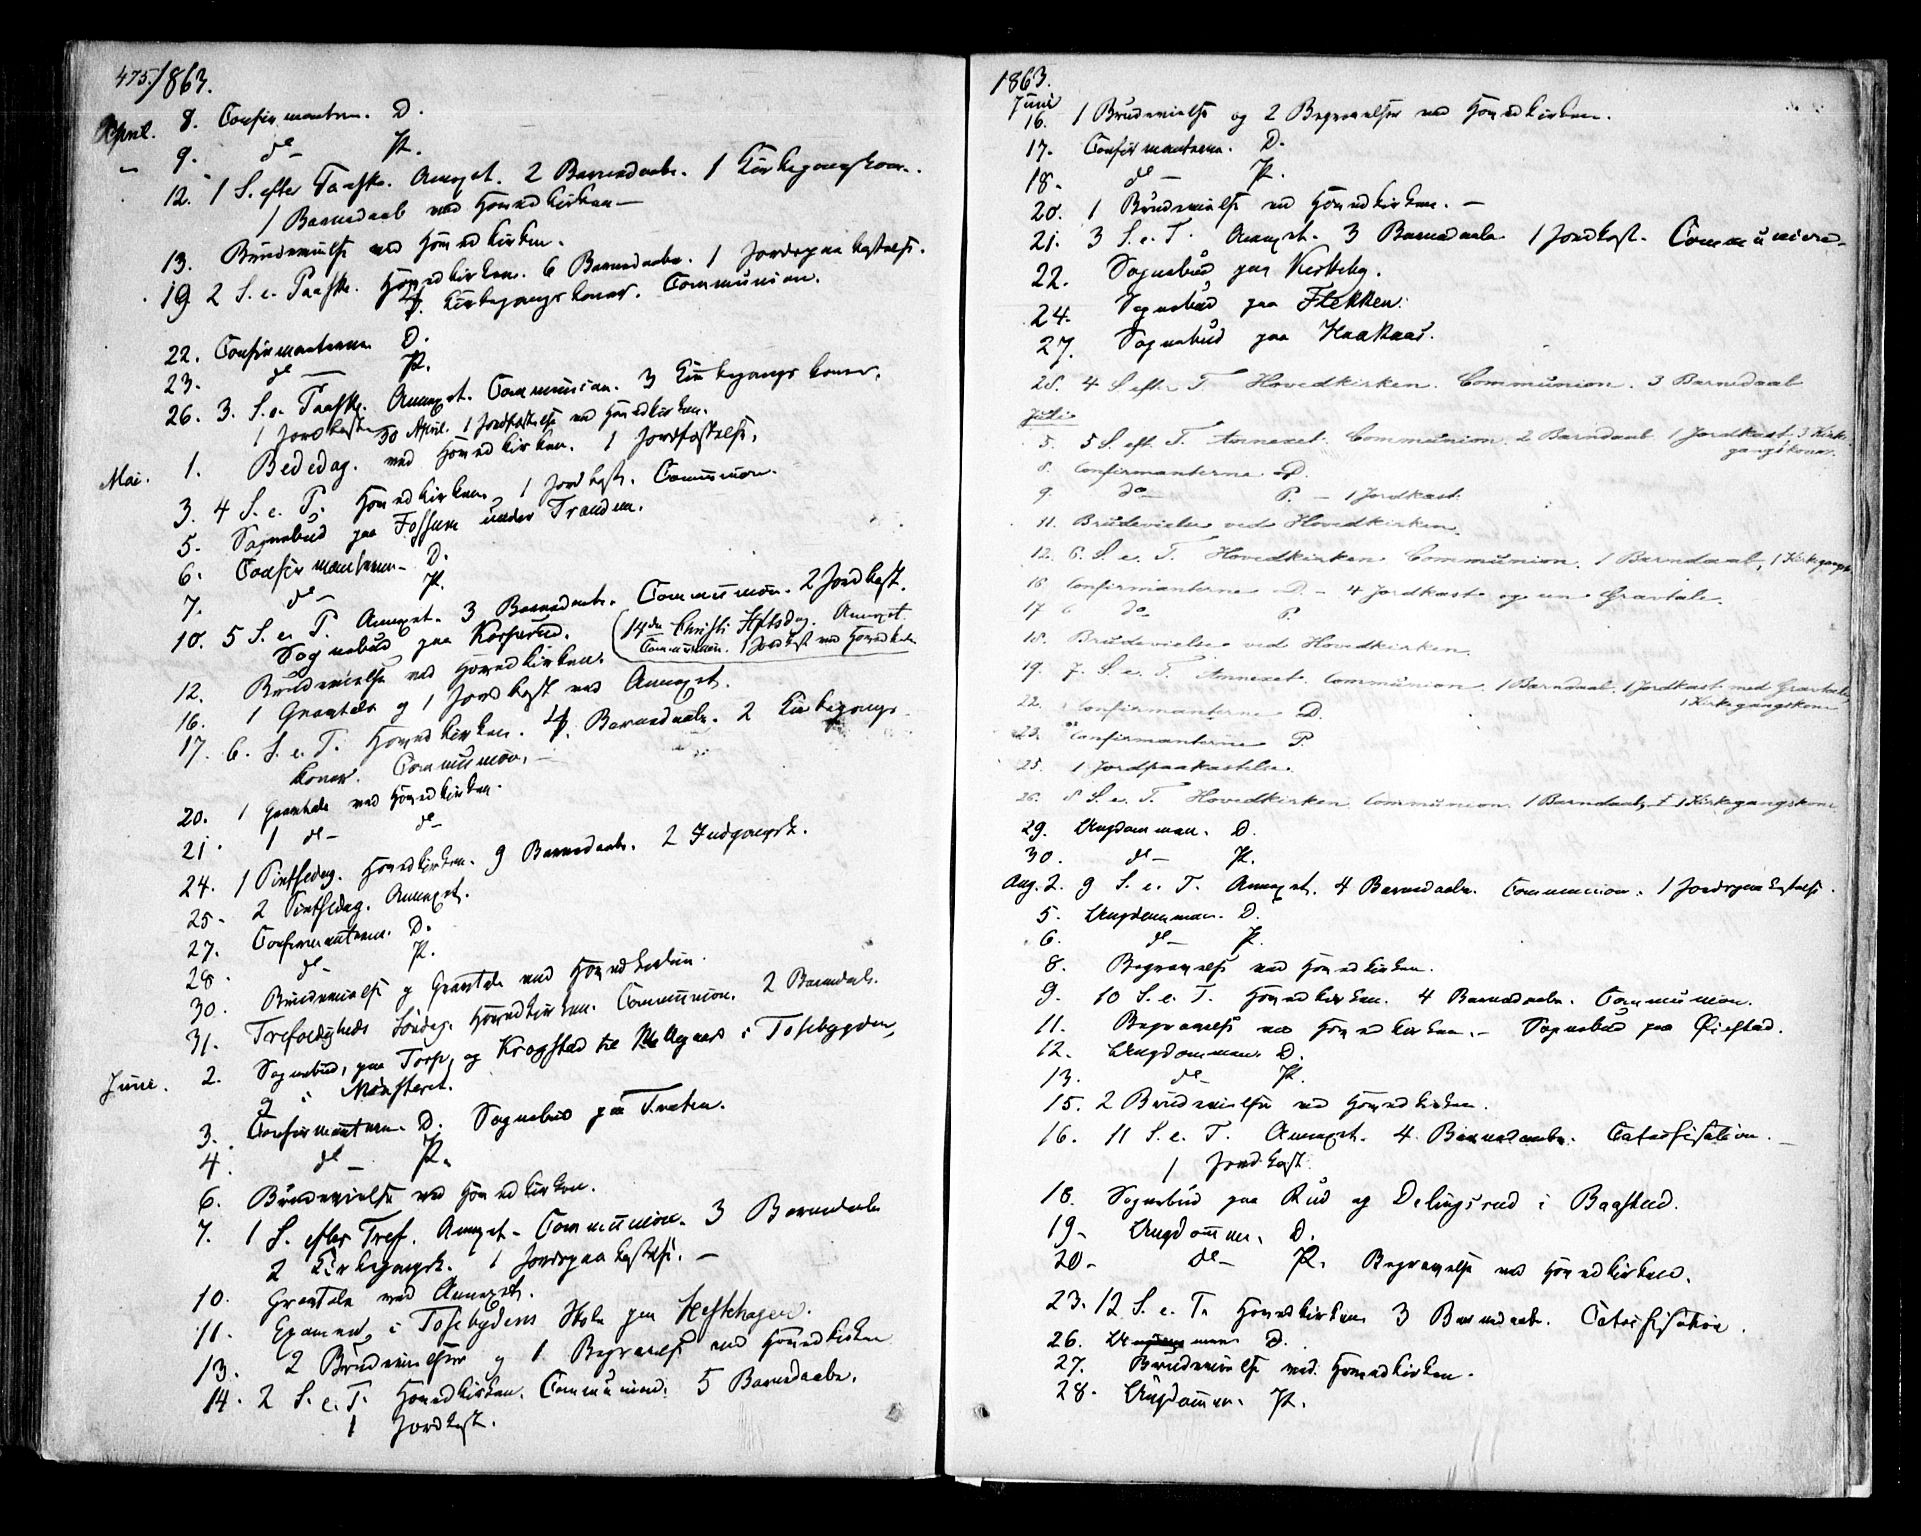 475. 1863.
April. 8. Confirmanterne. D.
" 9. do – P.
12. 1 S. efter Paaske. Annexet. 2 Barnedaabe. 1 Kirkegangskone.
1 Barnedaab ved Hovedkirken –
13. Brudevielse ved Hovedkirken.
19 2 S. e. Paaske. Hovedkirken. 6 Barnedaabe. 1 Jordspaakastelse.
4. Kirkegangskoner. Communion.
22. Confirmanterne D.
23. do – P.
26. 3. S. e. Paaske. Annexet. Communion. 3 Kirkegangskoner.
1 Jordkast 30 April. 1 Jordfæstelse ved Hovedkirken.
Mai. 1. Bededag. ved Hovedkirken. 1 Jordfæstelse.
3. 4 S. e. P. Hovedkirken 1 Jordkast. Communion.
5. Sognebud paa Fossum under Tranden.
6. Confirmanterne – D.
7. do – P.
10. 5 S. e. P. Annexet. 3 Barnedaabe. Communion. 2 Jordkast.
Sognebud paa Korperud. (14de Christi Hftsdag. Annexet
Communion. 1 Jordkast ved Hovedkirken
12. Brudevielse ved Hovedkirken.
16. 1 Gravtale og 1 Jordkast ved Annexet.
17. 6. S. e. P. Hovedkirken. 4. Barnedaabe. 2 Kirkegangs
koner. Communion. –
20. 1 Gravtale ved Hovedkirken.
21. 1 do – do –
24. 1 Pintsedag. Hovedkirken. 9 Barnedaabe. 2 Indgangsk.
25. 2 Pintsedag. Annexet.
27. Confirmanterne. D.
28. do – P.
30. Brudevielse og Gravtale ved Hovedkirken.
31. Trefoldigheds Søndag. Hovedkirken. Communion. 2 Barnedaab.
Juni. 2. Sognebud, paa Torp, og Krogstad til i Tosebygden,
og i Mønsteret.
3. Confirmanterne. D. Sognebud paa Træten.
4. do – P.
6. Brudevielse ved Hovedkirken.
7. 1 S. efter Tref. Annexet – Communion. 3 Barnedaab
2 Kirkegangsk. 1 Jordspaakastelse. –
10. Gravtale ved Annexet.
11. Examen, i Tosebygdens Skole paa Hestehagen.
13. 2 Brudevielser og 1 Begravelse ved Hovedkirken
14. 2 S. e. T. Hovedkirken. Communion. 5 Barnedaabe.
1 Jordkast.
1863.
Juni
16. 1 Brudevielse og 2 Begravelser ved Hovedkirken.
17. Confirmanterne. D.
18. do – P.
20. 1 Brudevielse ved Hovedkirken. –
21. 3 S. e. T. Annexet. 3 Barnedaabe 1 Jordkast. Communion.
22. Sognebud paa Kirkeby.
24. Sognebud paa Flekken.
27. Sognebud paa Haakaas.
28. 4 S. eft. T. Hovedkirken. Communion. 3 Barnedaab
Juli
5. 5 S. eft. T. Annexet. Communion. 2 Barndaab 1 Jordkast, 3 Kirke-
gangskoner.
8. Confirmanterne. D.
9. do – P. – 1 Jordkast.
11. Brudevielse ved Hovedkirken.
12. 6. S. e. T. Hovedkirken. Communion. 1 Barndaab, 1 Kirkegangsk
16 Confirmanterne D. – 4 Jordkast og en Gravtale.
17 do P.
18. Brudevielse ved Hovedkirken.
19. 7. S. e. T. Annexet. Communion. 1 Barndaab. 1 Jordkast med Gravtale
1 Kirkegangskone
22. Confirmanterne D.
23. Confirmanterne P.
25. 1 Jordpaakastelse.
26. 8 S. e. T. Hovedkirken. Communion. 1 Barndaab, 1 Kirkegangskone
29. Ungdommen. D.
30. do – P.
Aug. 2. 9 S. e. T. Annexet. 4 Barnedaabe. Communion. 1 Jordspaakastelse.
5. Ungdommen. D.
6. do – P.
8. Begravelse ved Hovedkirken.
9. 10 S. e. T. Hovedkirken. 4 Barnedaabe. Communion.
11. Begravelse ved Hovedkirken. – Sognebud paa Øiestad.
12. Ungdommen. D.
13. do – P.
15. 2 Brudevielser ved Hovedkirken.
16. 11 S. e. T. Annexet. 4 Barnedaabe. Catechisation. –
1 Jordkast.
18. Sognebud paa Rud og Delingsrud i Baastad.
19 – Ungdommen. D.
20 – do – P. Begravelse ved Hovedkirken.
23. 12 S. e. T. Hovedkirken 3 Barnedaabe. Catechisation.
26. D.
27. Brudevielse ved Hovedkirken.
28. Ungdommen. P.